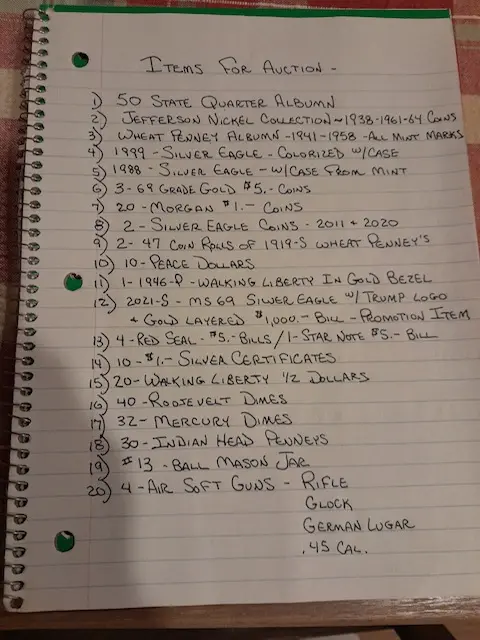 ITEMS FOR AUCTION -
1) 50 STATE QUARTER ALBUMN
2) JEFFERSON NICKEL COLLECTION ~ 1938-1961-64 COINS
3) WHEAT PENNEY ALBUMN - 1941-1958 - ALL MINT MARKS
4) 1999 - SILVER EAGLE - COLORIZED W/CASE
5) 1988 - SILVER EAGLE - W/CASE FROM MINT
6) 3-69 GRADE GOLD $5.- COINS
7) 20-MORGAN $1.- COINS
8) 2-SILVER EAGLE COINS - 2011 + 2020
9) 2-47 COIN ROLLS OF 1919-S WHEAT PENNEY'S
10) 10-PEACE DOLLARS
11) 1-1946-P-WALKING LIBERTY IN GOLD BEZEL
12) 2021-S - MS69 SILVER EAGLE W/TRUMP LOGO
+ GOLD LAYERED $1,000.- BILL - PROMOTION ITEM
13) 4-RED SEAL - $5.- BILLS / 1-STAR NOTE $5.- BILL
14) 10-$1.- SILVER CERTIFICATES
15) 20-WALKING LIBERTY 1/2 DOLLARS
16) 40-ROOSEVELT DIMES
17) 32-MERCURY DIMES
18) 30-INDIAN HEAD PENNEYS
19) #13-BALL MASON JAR
20) 4-AIR SOFT GUNS - RIFLE
GLOCK
GERMAN LUGAR
.45 CAL.